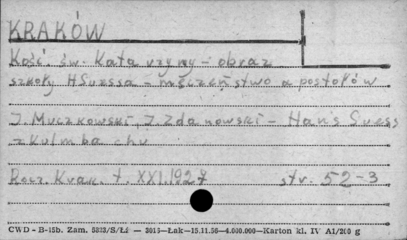 KRAKÓW
Kość. św. Katarzyny - obraz
szkoły HSuessa - męczeństwo apostołów
J. Muczkowski, J Zdanowski - Hans Suess
z Kulmbachu
Rocz. Krak. t. XXI.1927 str. 52-3
CWD - B-15b. Zam. 5323/S/Łź — 3015—Łak—15.11.56—4.000.000—Karton kl. IV A1/200 g